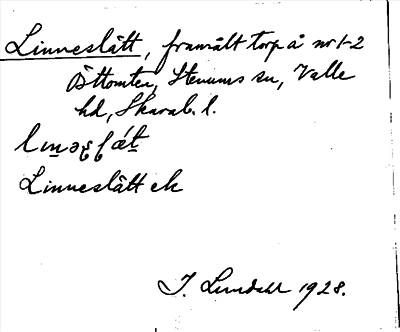 Linneslätt, frånsålt torp å nr 1-2
Åttomten, Stenums sn, Valle
hd, Skarab. l.
Linneslätt ek
I. Lundahl 1928.